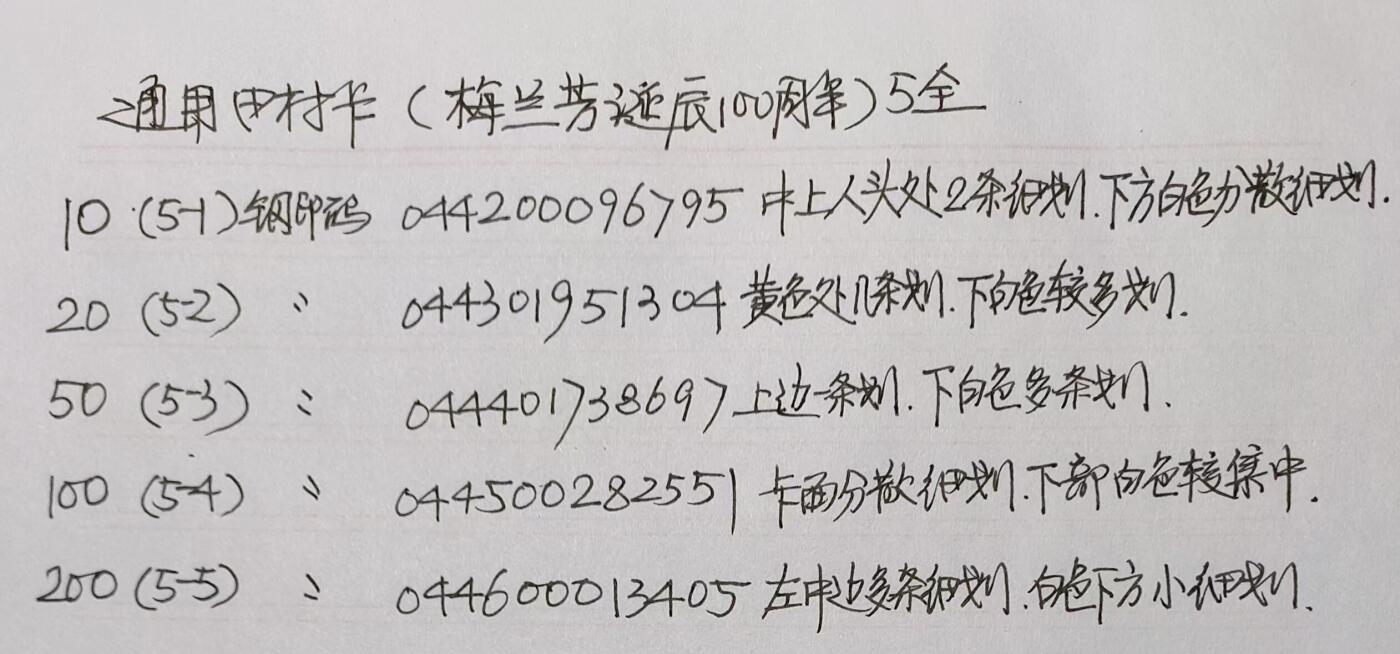 通用田村卡（梅兰芳诞辰100周年）5全
10（5-1）钢印码 044200096795 中上人头处2条细划.下方白色分散细划.
20（5-2） 〃 044301951304 黄色处几条划.下白色较多划.
50（5-3） 〃 044401738697 上边一条划.下白色多条划.
100（5-4） 〃 044500282551 卡面分散细划.下部白色较集中.
200（5-5） 〃 044600013405 左中边多条细划.白色下方小细划.